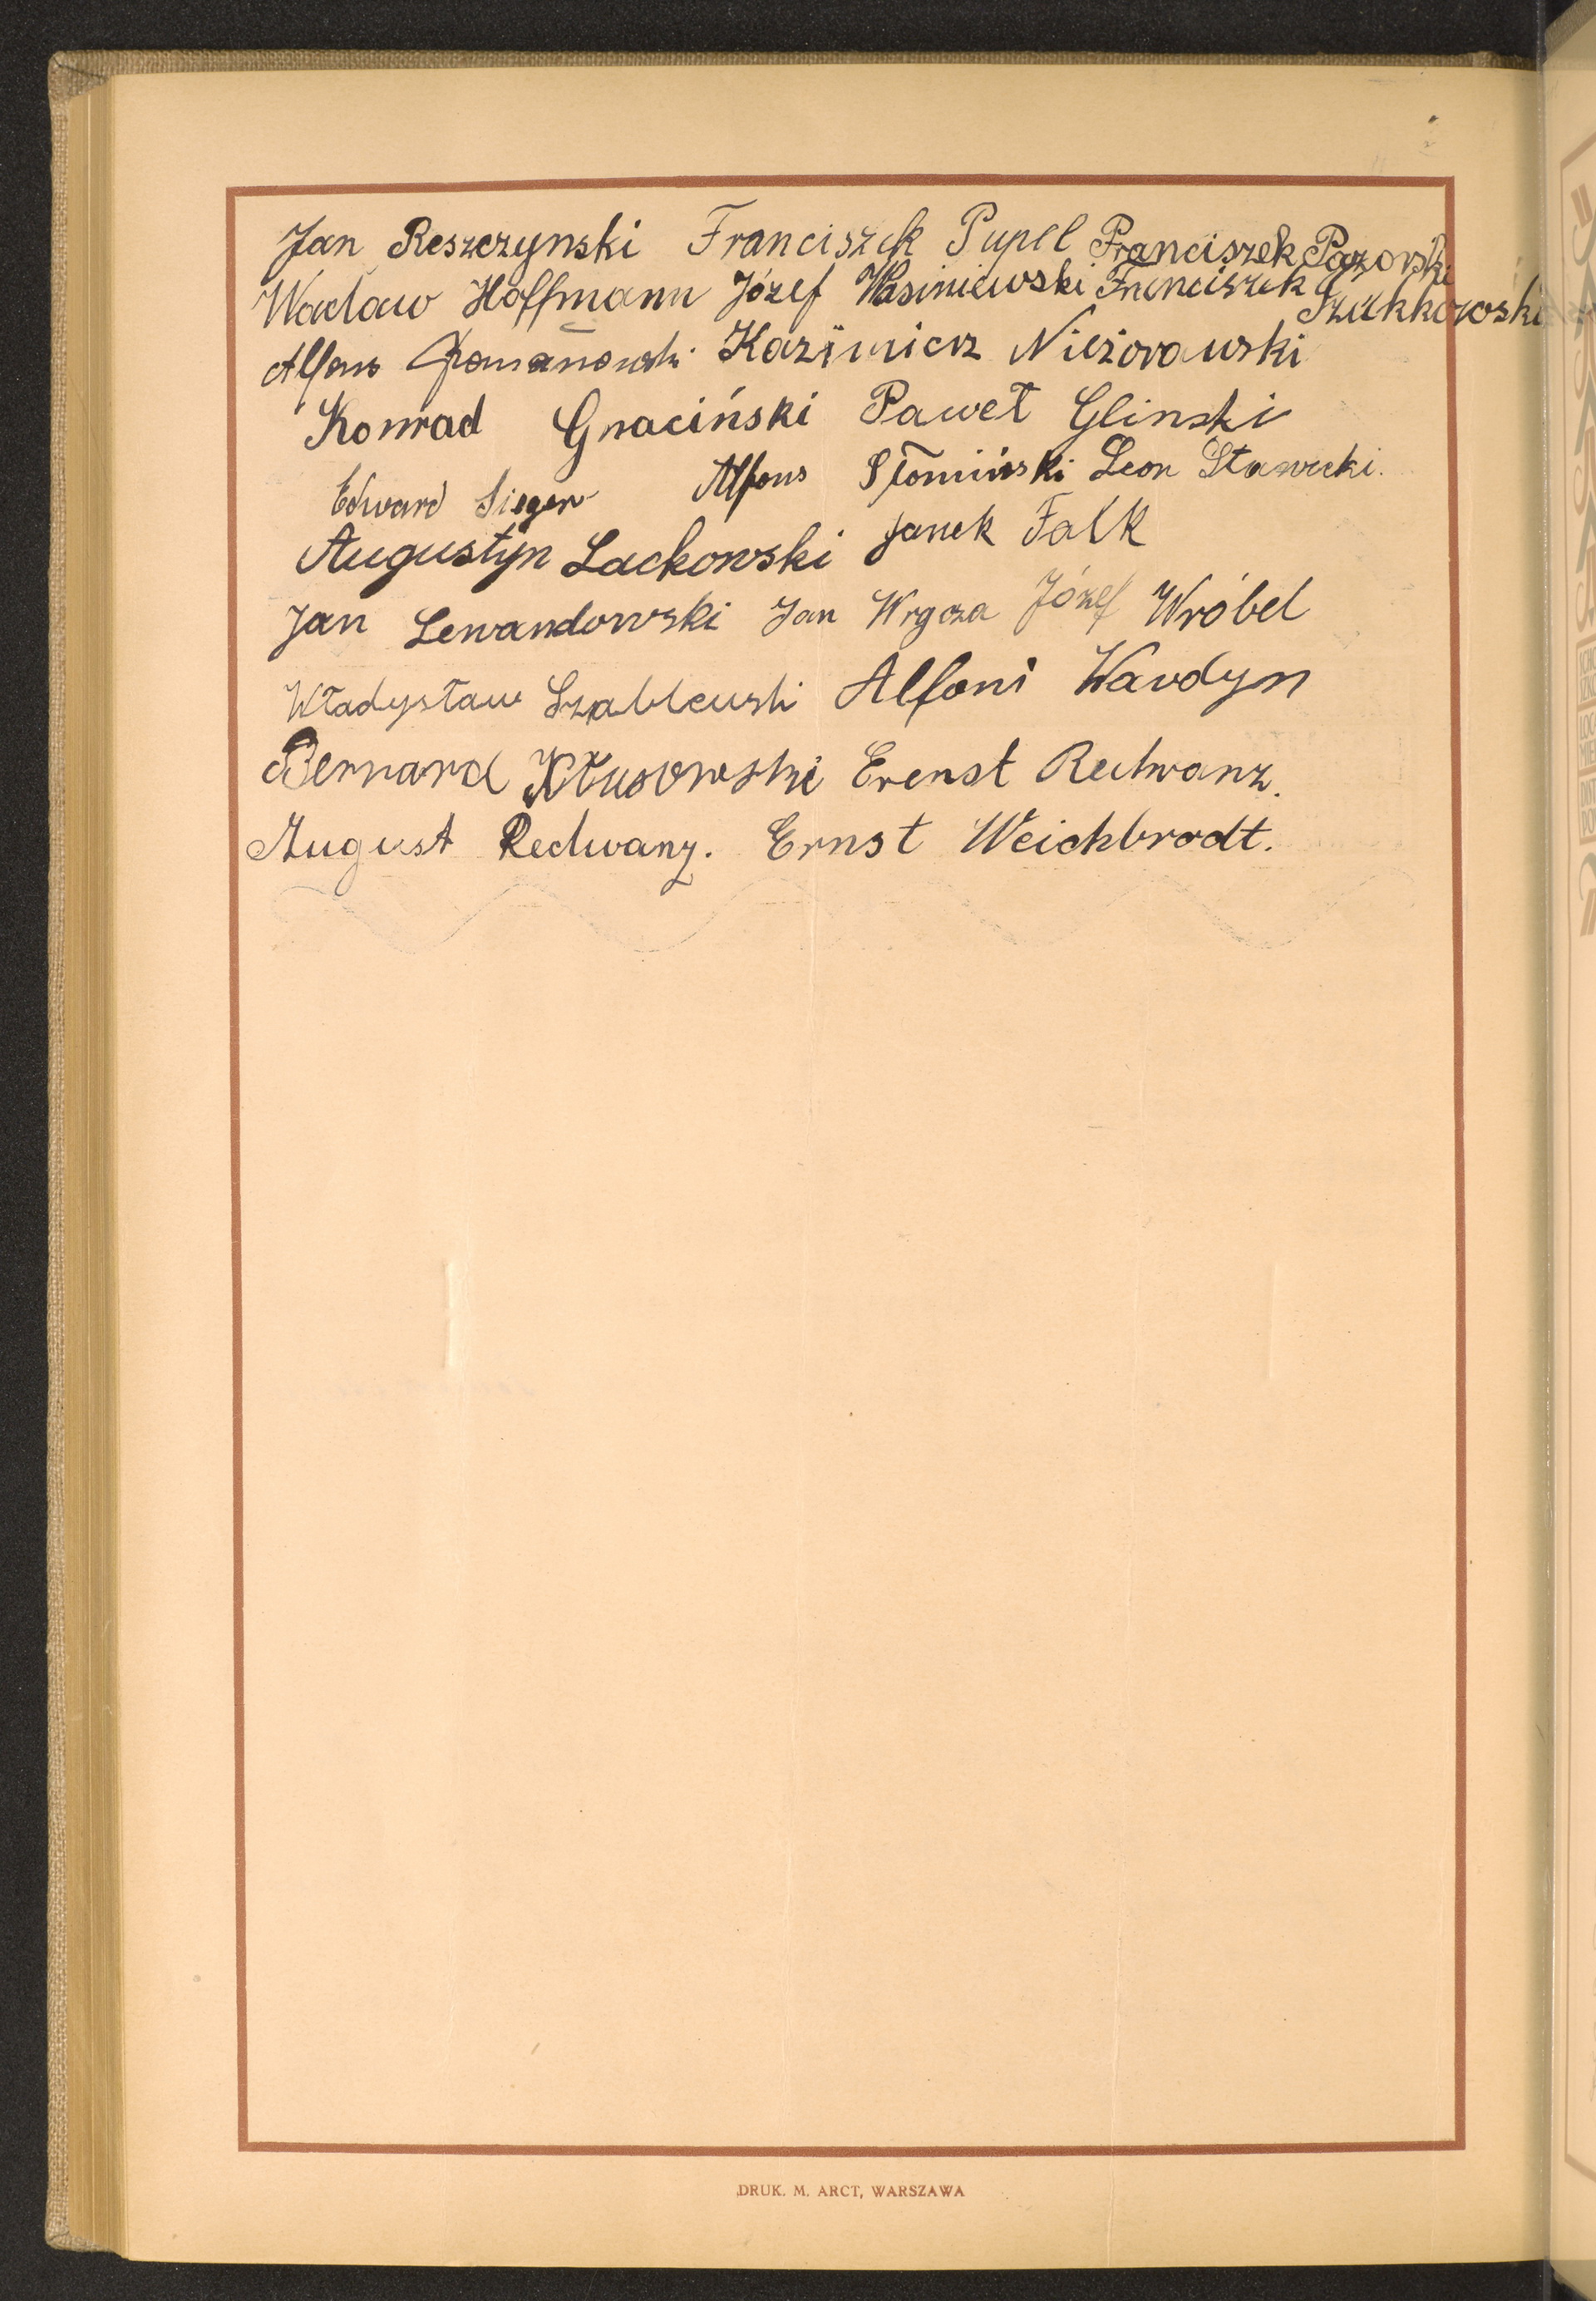 Jan Reszczynski Franciszek Pupel Franciszek Pazorski
Wacław Hoffmann Józef Wasiniewski Franciszek Szukkowski
Alfons Romanowski Kazimierz Nieżorawski
Konrad Gnaciński Paweł Glinski
Edward Sieger Alfons Słomiński Leon Stawicki.
Augustyn Lackowski Janek Falk
Jan Lewandowski Jan Wrycza Józef Wróbel
Władysław Szablewski Alfons Wardyn
Bernard Kłusowski Erenst Redwanz.
August Redwanz. Ernst Weichbrodt.
DRUK. M. ARCT, WARSZAWA